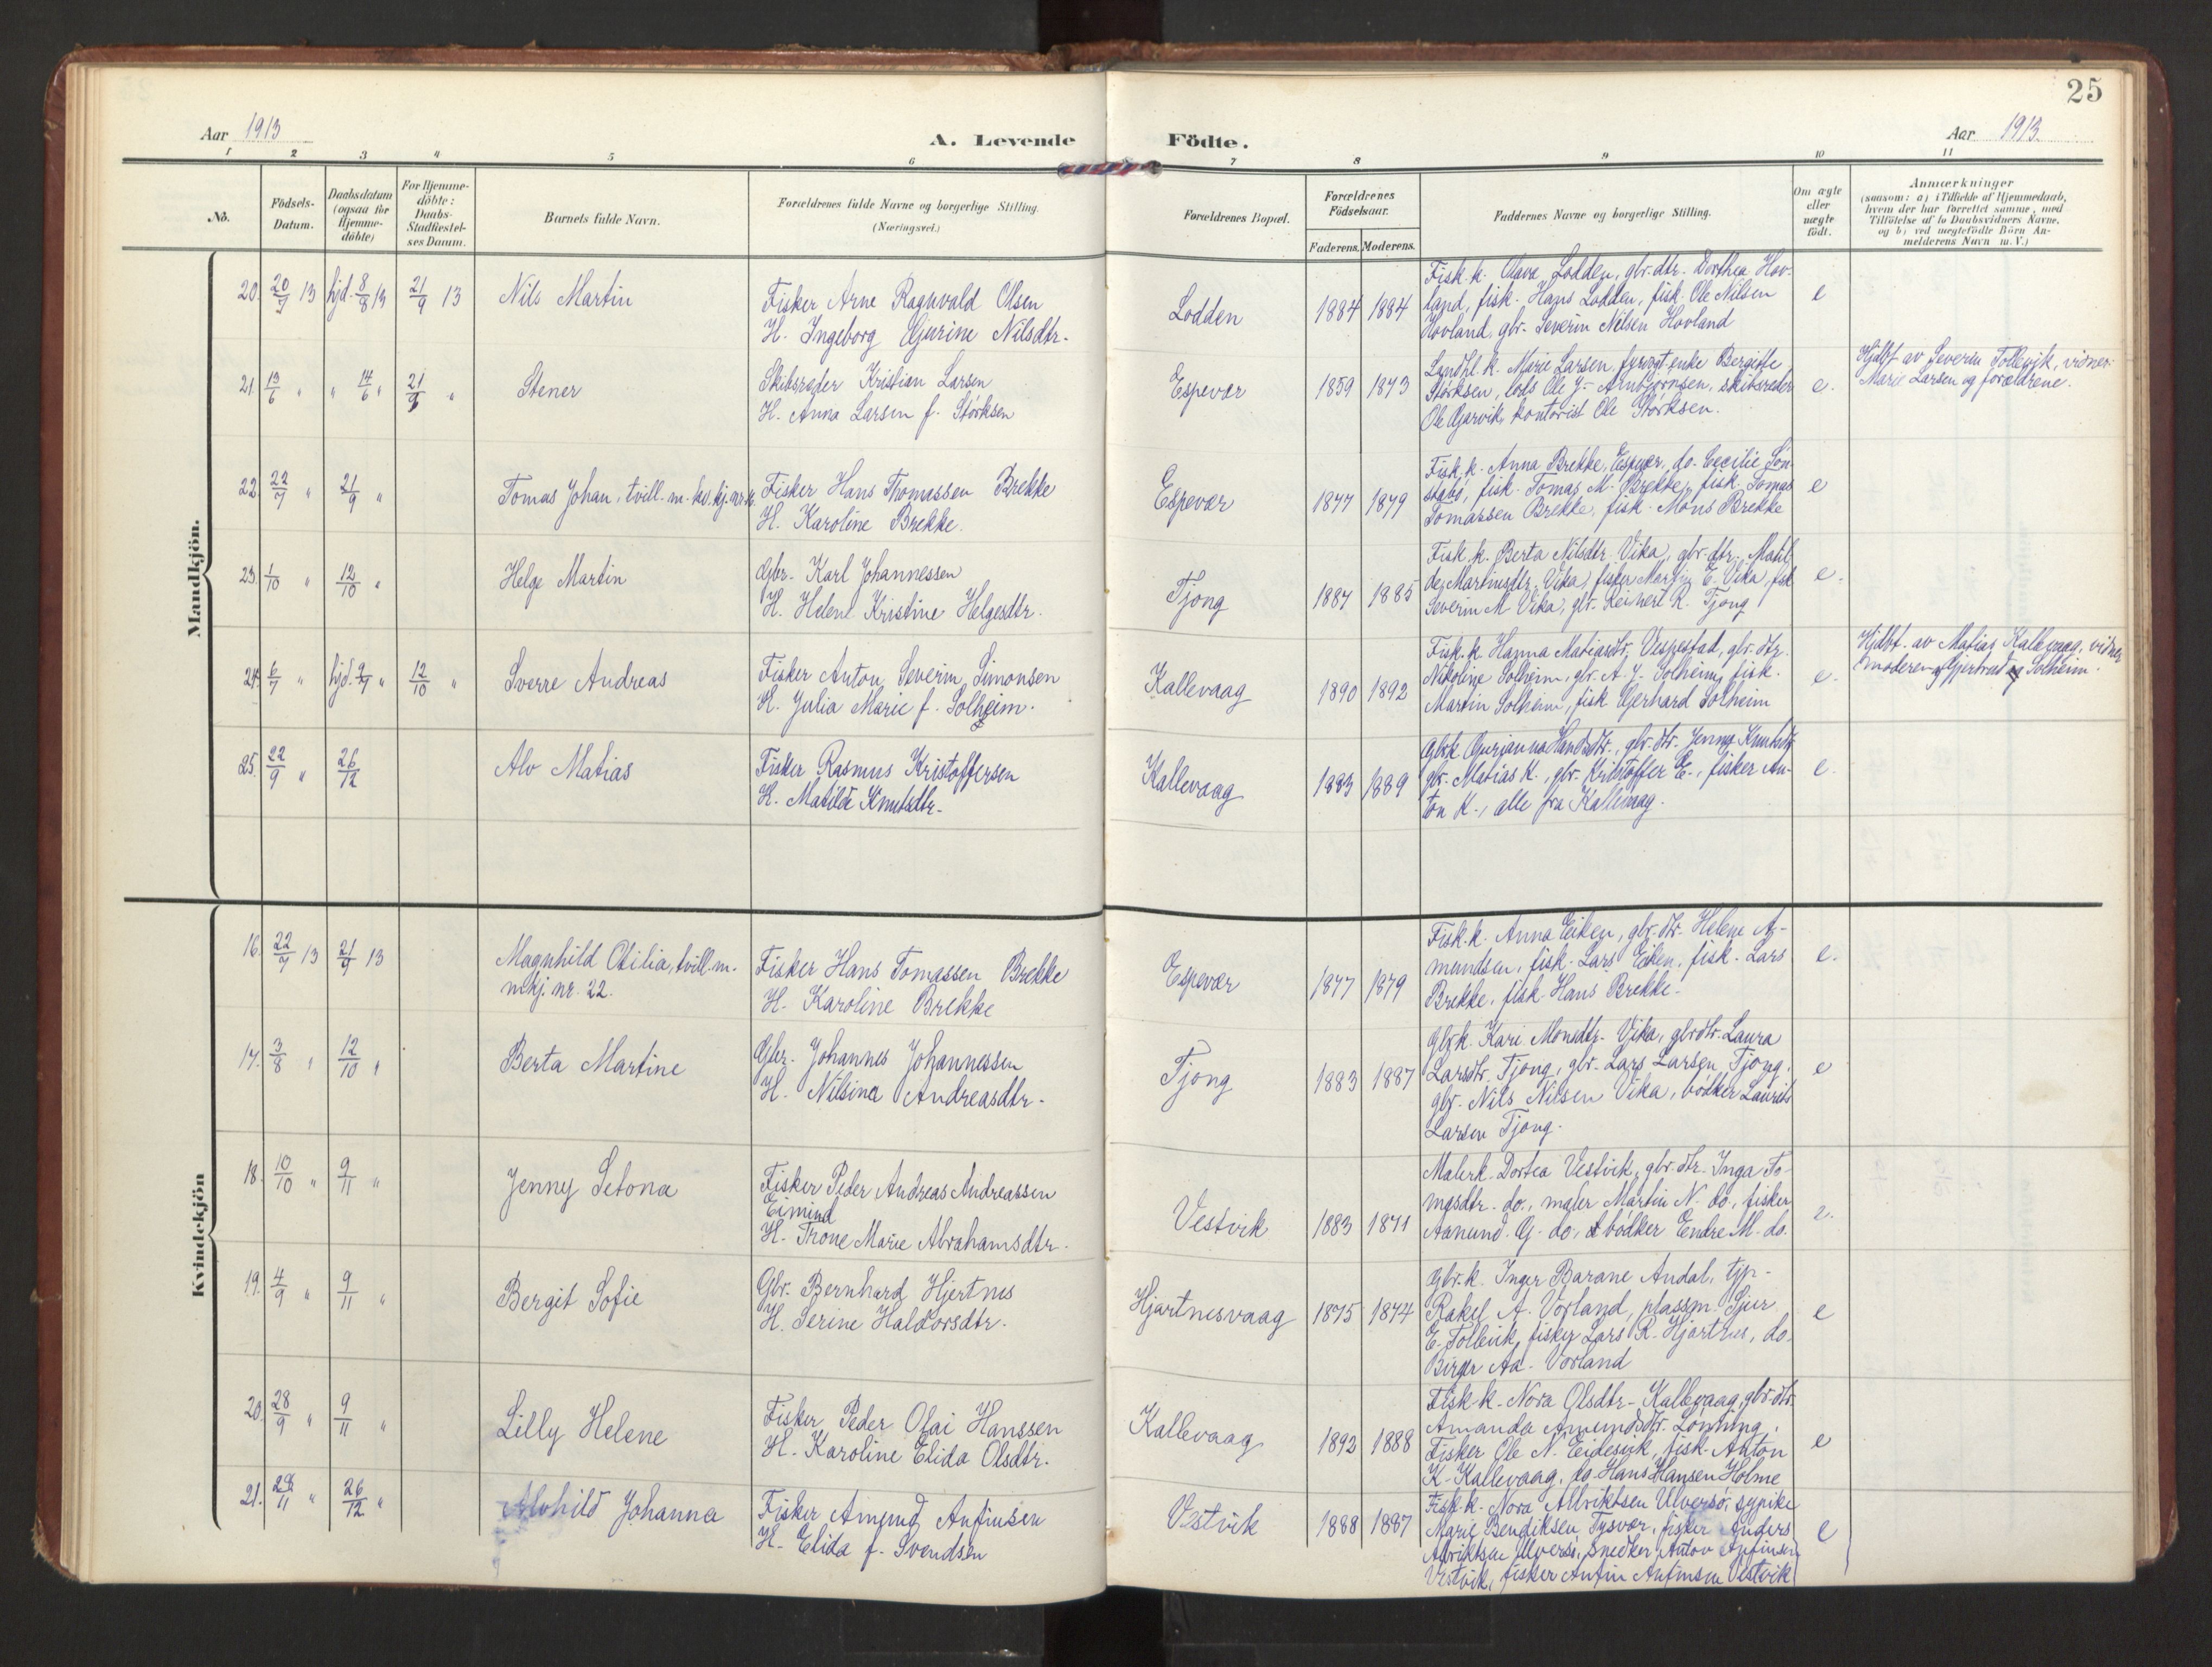 25
Aar 1913
A. Levende Födte.
Aar 1913
1 2 3 4 5 6 7 8 9 10 11
No.
Födsels-Datum.
Daabsdatum (ogsaa for Hjemmedöbte)
For Hjemmedöbte: Daabs-Stadfæstelses Datum.
Barnets fulde Navn.
Forældrenes fulde Navne og borgerlige Stilling.
(Næringsvei.)
Forældrenes Bopæl.
Forældrenes Födselsaar.
Faderens. Moderens.
Faddernes Navne og borgerlige Stilling.
Om ægte eller uægte födt.
Anmærkninger
(saasom: a) i Tilfælde af Hjemmedaab,
hvem der har forrettet samme, med
Tilföielse af to Daabsvidners Navne,
og b) ved uægtefödte Börn Anmelderens Navn m. V.)
Mandkjön.
20. 20/7 13 hjd. 8/8 13 21/9 13 Nils Martin
Fisker Arne Ragnvald Olsen
H. Ingeborg Gurine Nilsdtr.
Lodden 1884 1884
Fisk.k. Olava Lodden, gbr.dtr. Dorthea Hov-
land, fisk. Hans Lodden, fisk. Ole Nilsen
Hovland, gbr. Severin Nilsen Hovland
e
21. 13/6 " " 14/6 " 21/9 " Stener
Skibsreder Kristian Larsen
H. Anna Larsen f. Størksen
Espevær 1859 1873
Landhl.k. Marie Larsen, fyrvgt.enke Bergitte
Størksen, lods Ole J. Arnbjørnsen, skibsreder
Ole Gjarvik, kontorist Ole Størksen.
e.
Hjdbt av Severin Tollevik, vidner
Marie Larsen og forældrene.
22. 22/7 " 21/9 " Tomas Johan, tvill. m.
Fisker Hans Thomassen Brekke
H. Karoline Brekke.
Espevær 1877 1879
Fisk.k. Anna Brekke, Espevær, do. Cecilie Løn-
stabø, fisk. Tomas M. Brekke, fisk. Tomas
Tomassen Brekke, fisk. Mons Brekke
e
23. 1/10 " 12/10 " Helge Martin
Gbr. Karl Johannessen
H. Helene Kristine Helgesdtr.
Tjong 1887 1885
Fisk.k. Berta Nilsdtr. Vika, gbr.dtr. Matil-
de Martinsdtr. Vika, fisker Martin E. Vika, fisk.
Severin M. Vika, gbr. Reinert R. Tjong
e.
24. 6/7 " hjd. 9/7 " 12/10 " Sverre Andreas
Fisker Anton Severin Simonsen
H. Julia Marie f. Solheim.
Kallevaag 1890 1892
Fisk.k. Hanna Matiasdtr. Vespestad, gbr.dtr.
Nikoline Solheim, gbr. A. J. Solheim, fisk.
Martin Solheim, fisk Gerhard Solheim
e.
Hjdbt. av Matias Kallevaag, vidner
moderen og Gjertrud Solheim.
25. 22/9 " 26/12 Alv Matias
Fisker Rasmus Kristoffersen
H. Matilde Knutsdtr.
Kallevaag 1883 1889
Gbr.k. Gurianna Hansdtr., gbr.dtr. Jenny Knutsdtr.
gbr. Matias K., gbr. Kristoffer E., fisker An-
ton K., alle fra Kallevaag.
e.
Kvindekjön
16. 22/7 13 21/9 13 Magnhild Otilia, tvill. m.
mkj. nr. 22.
Fisker Hans Tomassen Brekke
H. Karoline Brekke
Espevær 1877 1879
Fisk.k. Anna Eiken, gbr.dtr. Helene A-
mundsen, fisk. Lars Eiken, fisk. Lars
Brekke, fisk. Hans Brekke.
e.
17. 3/8 " 12/10 " Berta Martine
Gbr. Johannes Johannessen
H. Nilsina Andreasdtr.
Tjong 1883 1887
Gbr.k. Kari Monsdtr. Vika, gbr.dtr. Laura
Larsdtr. Tjong, gbr. Lars Larsen Tjong,
gbr. Nils Nilsen Vika, bødker Laurits
Larsen Tjong.
e
18. 10/10 " 9/11 " Jenny Setona
Fisker Peder Andreas Andreassen
Eimind
H. Trone Marie Abrahamsdtr.
Vestvik 1883 1871
Malerk. Dortea Vestvik, gbr.dtr. Inga To-
masdtr. do., maler Martin N. do., fisker
Aanund G. do., bødker Endre M. do.
e.
19. 4/9 " 9/11 " Bergit Sofie
Gbr. Bernhard Hjertnes
H. Serine Haldorsdtr.
Hjartnesvaag 1875 1874
Gbr.k. Inger Barane Andal, tjp.
Rakel A. Vorland, plassm. Sjur
E. Tollevik, fisker Lars R. Hjartnes, do.
Birger Aa. Vorland
e
20. 28/9 " 9/11 " Lilly Helene
Fisker Peder Olai Hanssen
H. Karoline Elida Olsdtr.
Kallevaag 1892 1888
Fisk.k. Nora Olsdtr. Kallevaag, gbr.dtr.
Amanda Amundsdtr. Lønning,
Fisker Ole N. Eidesvik, fisk. Anton
K. Kallevaag, do. Hans Hansen Holme
e
21. 28/11 " 26/12 " Alvhild Johanna
Fisker Amund Anfinsen
H. Elida f. Svendsen
Vestvik 1888 1887
Fisk.k. Nora Albriktsen Ulversø, sypike
Marie Bendiksen, Tysvær, fisker Anders
Albriktsen Ulversø, snedker Anton Anfinsen
Vestvik, fisker Anfin Anfinsen Vestvik
e